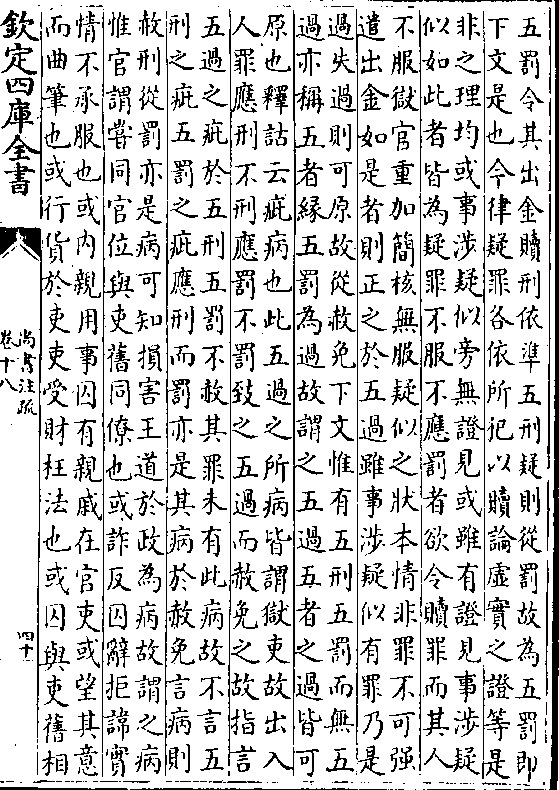 五罰令其出金贖刑依準五刑疑則從罰故為五罰即
下文是也今律疑罪各依所犯以贖論虛實之證等是
非之理均或事涉疑似旁無證見或雖有證見事涉疑
似如此者皆為疑罪不服不應罰者欲令贖罪而其人
不服獄官重加簡核無服疑似之狀本情非罪不可强
遣出金如是者則正之於五過雖事涉疑似有罪乃是
過失過則可原故從赦免下文惟有五刑五罰而無五
過亦稱五者緣五罰為過故謂之五過五者之過皆可
原也釋詁云疵病也此五過之所病皆謂獄吏故出入
人罪應刑不刑應罰不罰致之五過而赦免之故指言
五過之疵於五刑五罰不赦其罪未有此病故不言五
刑之疵五罰之疵應刑而罰亦是其病於赦免言病則
赦刑從罰亦是病可知損害王道於政為病故謂之病
惟官謂嘗同官位與吏舊同僚也或詐反囚辭拒諱實
情不承服也或內親用事囚有親戚在官吏或望其意
而曲筆也或行貨於吏吏受財枉法也或囚與吏舊相
欽定四庫全書
尚書注疏
卷十八
四十